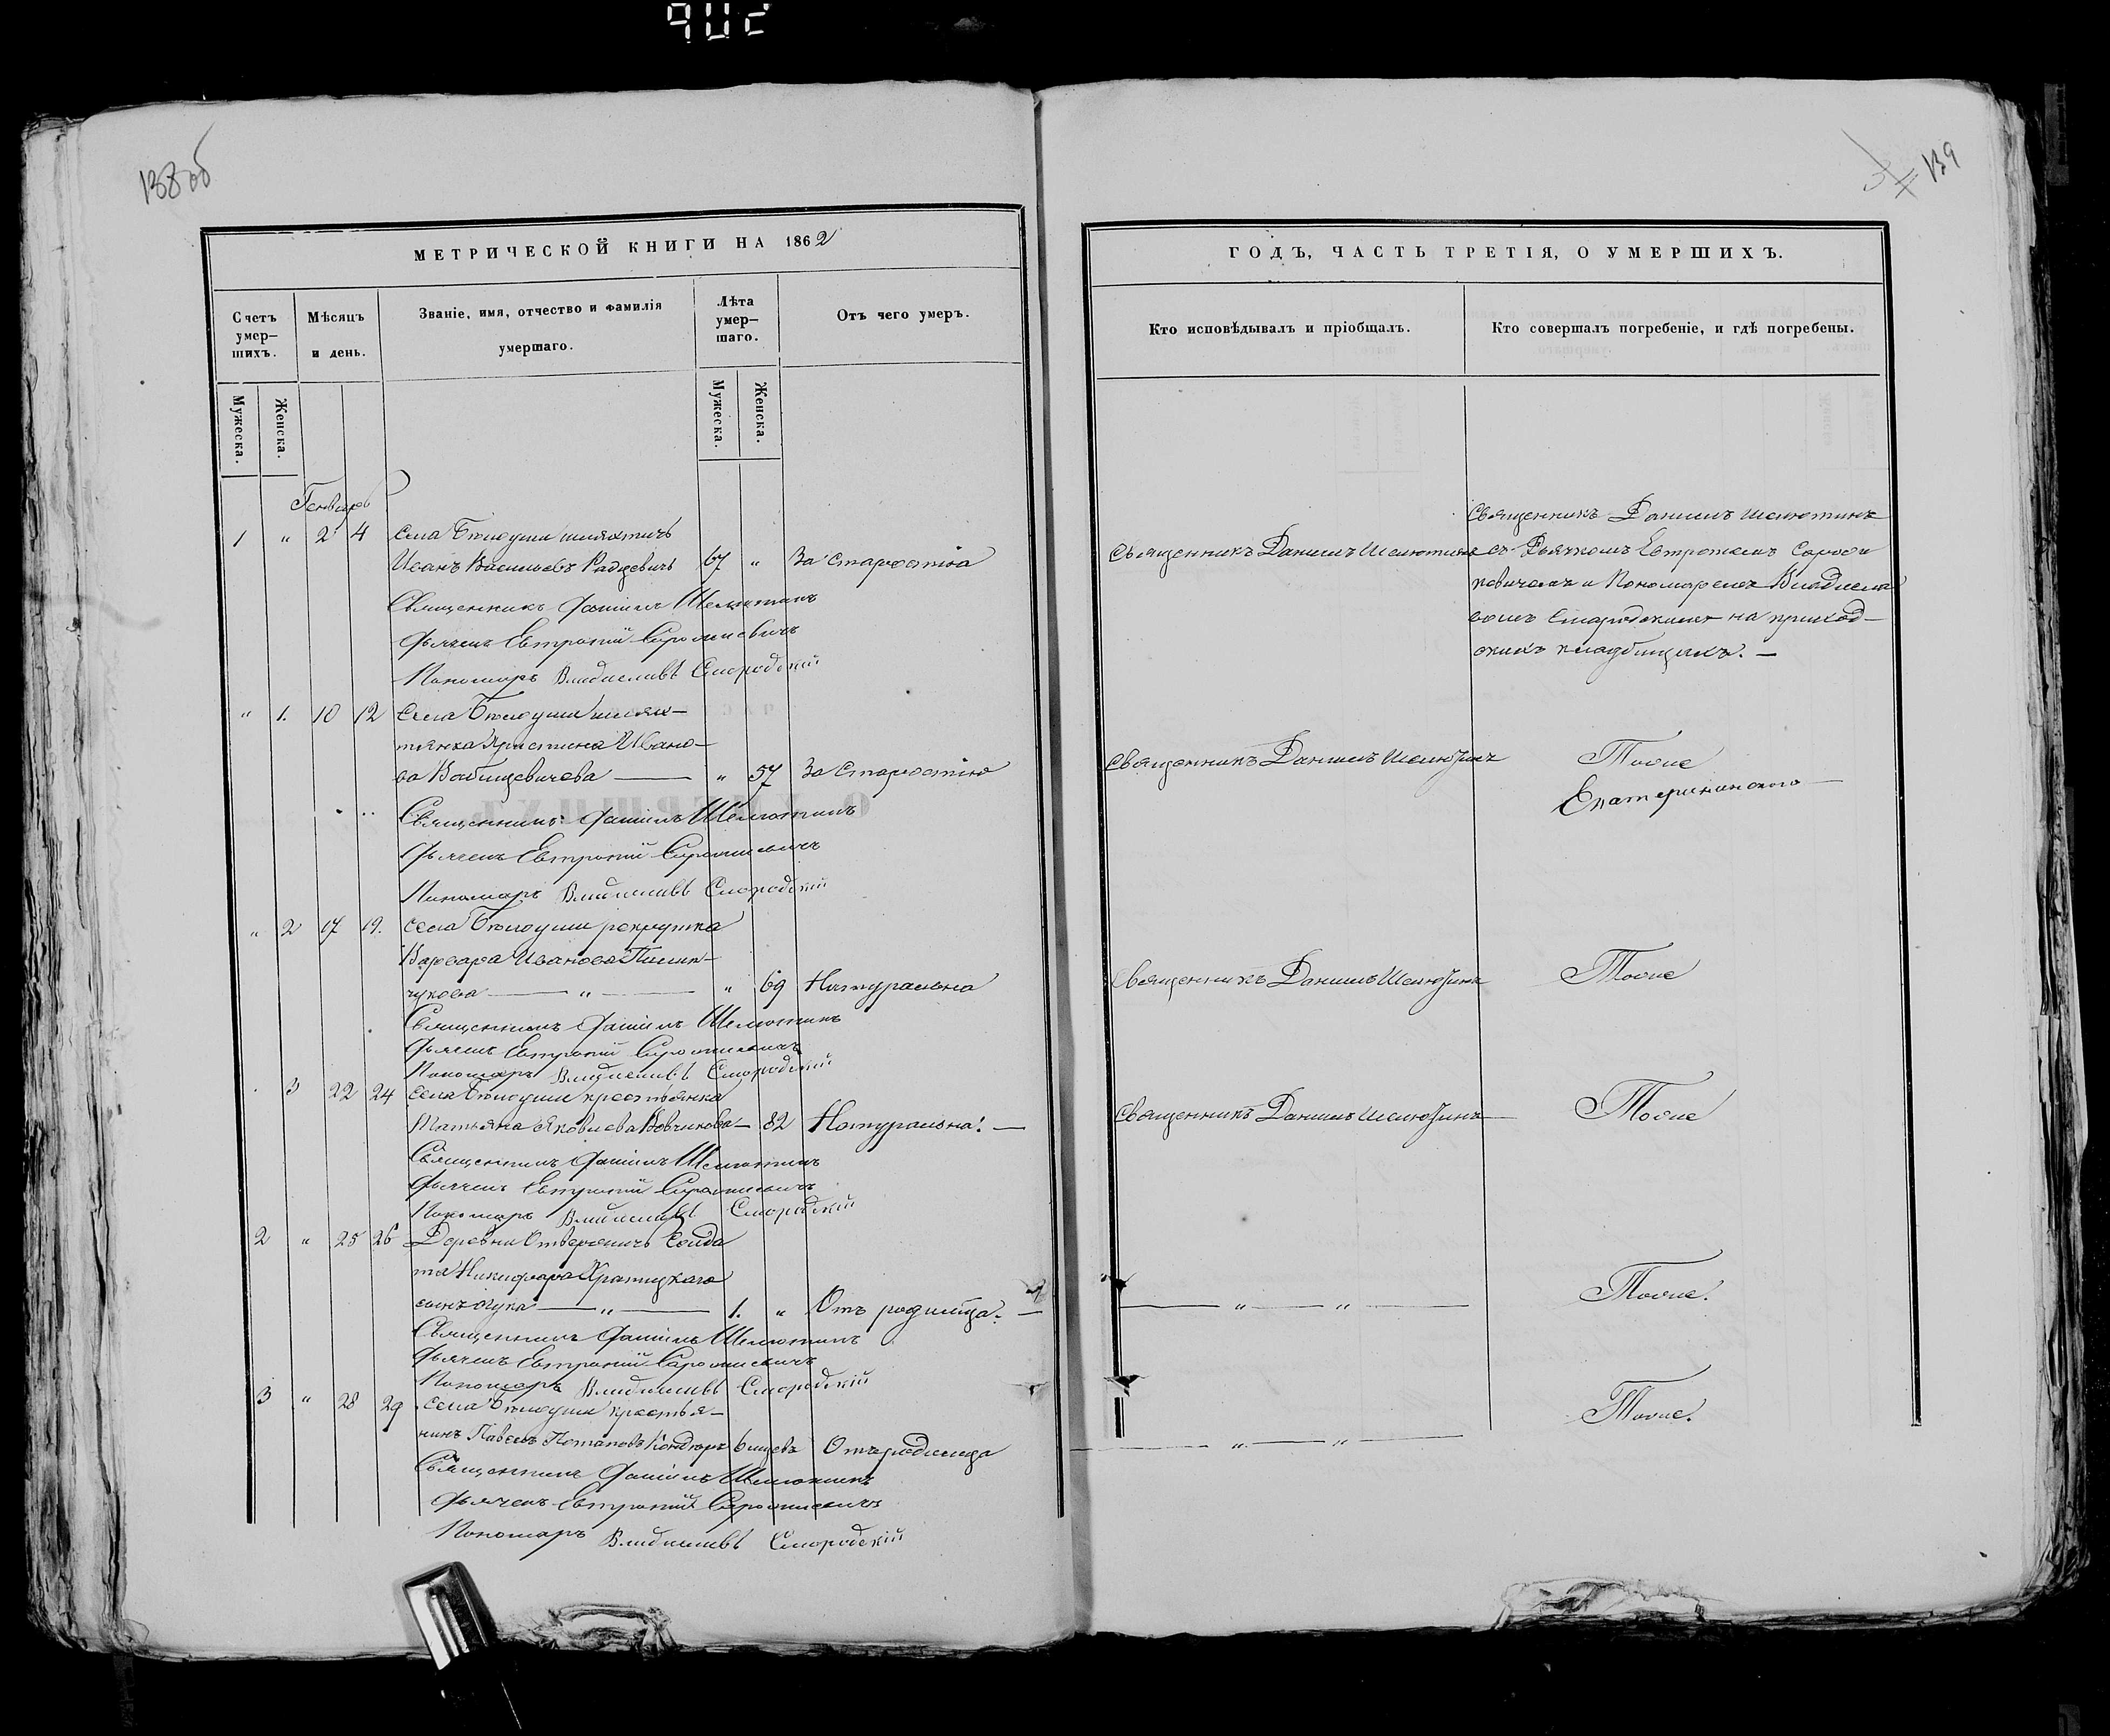 138об
139
МЕТРИЧЕСКОЙ КНИГИ НА 1862
Счетъ умер-шихъ.
Мѣсяцъ и день.
Званіе, имя, отчество и фамилія умершаго.
Лѣта умер-шаго.
Отъ чего умеръ.
Мужеска.
Женска.
Мужеска.
Женска.
Генварь
1 " 2 4 Села Бѣлоуши шляхтичъ
Иванъ Васильевъ Радцевичъ 67 " За Старостію
Священникъ Даніилъ Шелютинъ
Дьячекъ Евтропій
Пономарь Владиславъ Смородскій
" 1. 10 12 Села Бѣлоуши шлях-
тянка Христина Ивано-
ва Вабищевичева — " 57 За Старостію
Священникъ Даніилъ Шелютинъ
Дьячекъ Евтропій
Пономарь Владиславъ Смородскій
" 2 17 19. Села Бѣлоуши рекрутка
Варвара Иванова
чукова — " — " 69 Натурально
Священникъ Даніилъ Шелютинъ
Дьячекъ Евтропій
Пономарь Владиславъ Смородскій
3 22 24 Села Бѣлоуши крестьянка
Татьяна Яковлева Вовчикова — 82 Натурально. —
Священникъ Даніилъ Шелютинъ
Дьячекъ Евтропій
Пономарь Владиславъ Смородскій
2 " 25 26 Деревни Отвержичъ Солда
та Никифора Храпицкаго
сынъ — " — 1. " Отъ родимца. —
Священникъ Даніилъ Шелютинъ
Дьячекъ Евтропій
Пономарь Владиславъ Смородскій
3 " 28 29 Села Бѣлоуши крестья-
нинъ Павелъ Потаповъ 6 Отъ родимца
Священникъ Даніилъ Шелютинъ
Дьячекъ Евтропій
Пономарь Владиславъ Смородскій
ГОДЪ, ЧАСТЬ ТРЕТІЯ, О УМЕРШИХЪ.
Кто исповѣдывалъ и пріобщалъ.
Кто совершалъ погребеніе, и гдѣ погребены.
Священникъ Даніилъ Шелютинъ
Священникъ Даніилъ Шелютинъ
съ Дьячкомъ Евтропіемъ
и Пономаремъ Владисла
вомъ Смородскимъ на приход-
скихъ кладбищахъ. —
Священникъ Даніилъ Шелютинъ
Тоже
Екатерининского
Священникъ Даніилъ Шелютинъ
Тоже
Священникъ Даніилъ Шелютинъ
Тоже
— " — " —
Тоже.
— " — " —
Тоже.